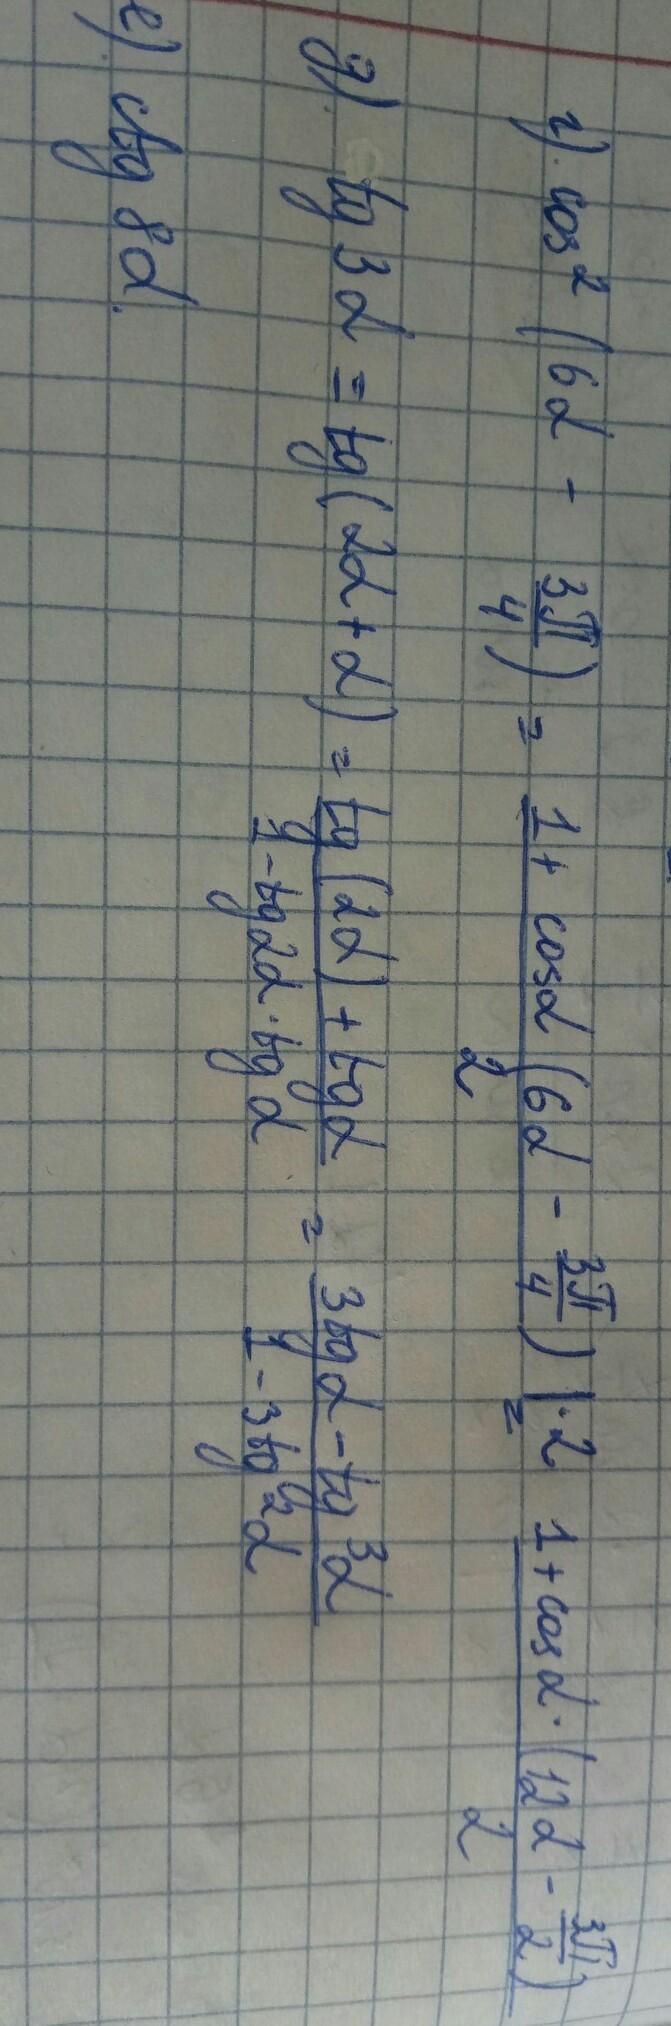 г). cos² (6α - 3π/4) = 1 + cosα (6α - 3π/4) |·2 / 2 = 1 + cosα · (12α - 3π/2) / 2
д). tg 3α = tg (2α + α) = tg (2α) + tg α / 1 - tg 2α · tg α = 3tg α - tg³ α / 1 - 3tg² α
е). ctg 8α.